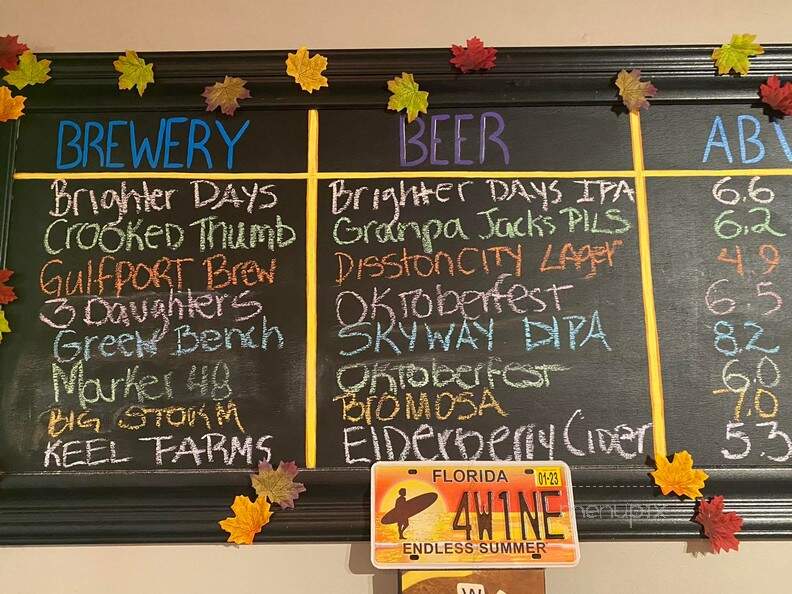 BREWERY BEER ABV
Brighter DAYS Brighter DAYS IPA 6.6
Crooked Thumb Granpa Jacks PILS 6.2
Gulfport Brew DisstonCITY LAger 4.9
3 Daughters OKToberfesT 6.5
Green Bench SKYWAY DIPA 8.2
Marker 48 OKToberfesT 6.0
BIG STORM BROMOSA 7.0
KEEL FARMS ElDerberry Cider 5.3
FLORIDA 01-23
4W1NE
ENDLESS SUMMER
menupix
W